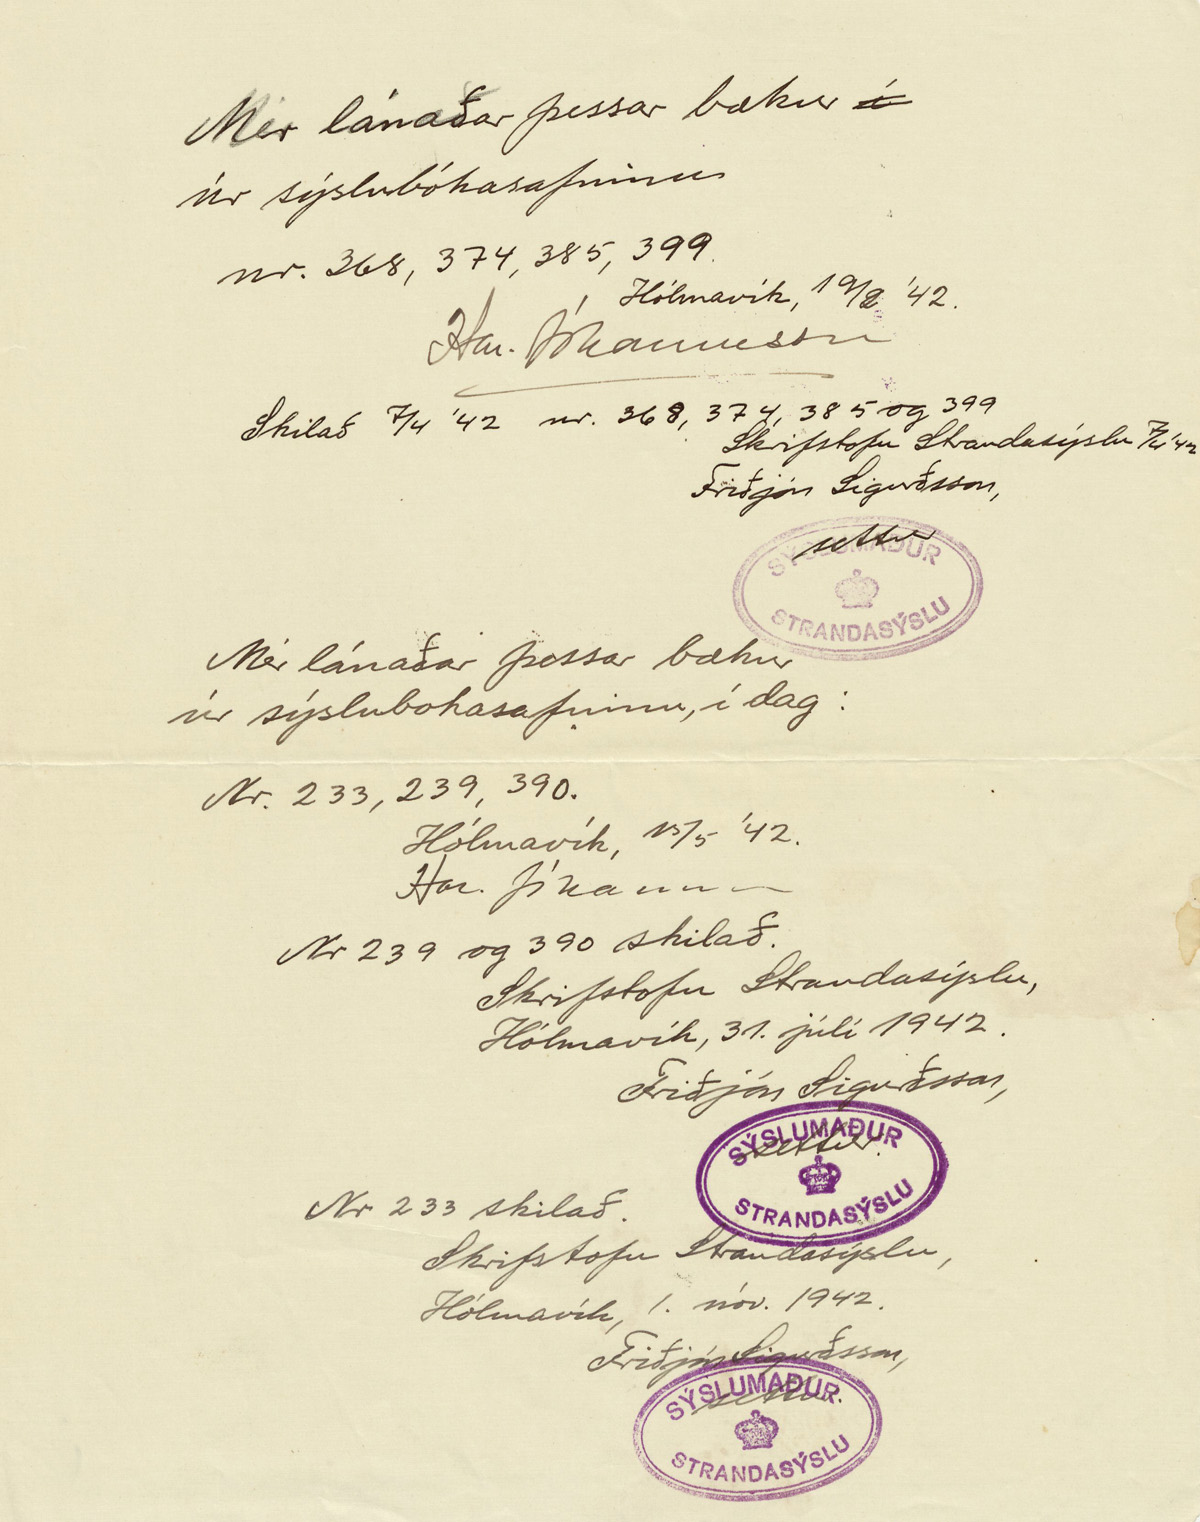 Mér lánaðar þessar bækur í
úr sýslubókasafninu
nr. 368, 374, 385, 399.
Hólmavík, 19/2 '42.
Har. Jóhannesson
Skilað 7/4 '42 nr. 368, 374, 385 og 399
Skrifstofu Strandasýslu 7/4 '42
Friðjón Sigurðsson,
settur
SÝSLUMAÐUR
STRANDASÝSLU
Mér lánaðar þessar bækur
úr sýslubokasafninu, í dag:
Nr. 233, 239, 390.
Hólmavík, 15/5 '42.
Har. Jóhann
Nr 239 og 390 skilað.
Skrifstofu Strandasýslu,
Hólmavík, 31. júlí 1942.
Friðjón Sigurðsson,
settur.
SÝSLUMAÐUR
STRANDASÝSLU
Nr 233 skilað.
Skrifstofu Strandasýslu,
Hólmavík, 1. nóv. 1942.
Friðjón Sigurðsson,
settur.
SÝSLUMAÐUR
STRANDASÝSLU